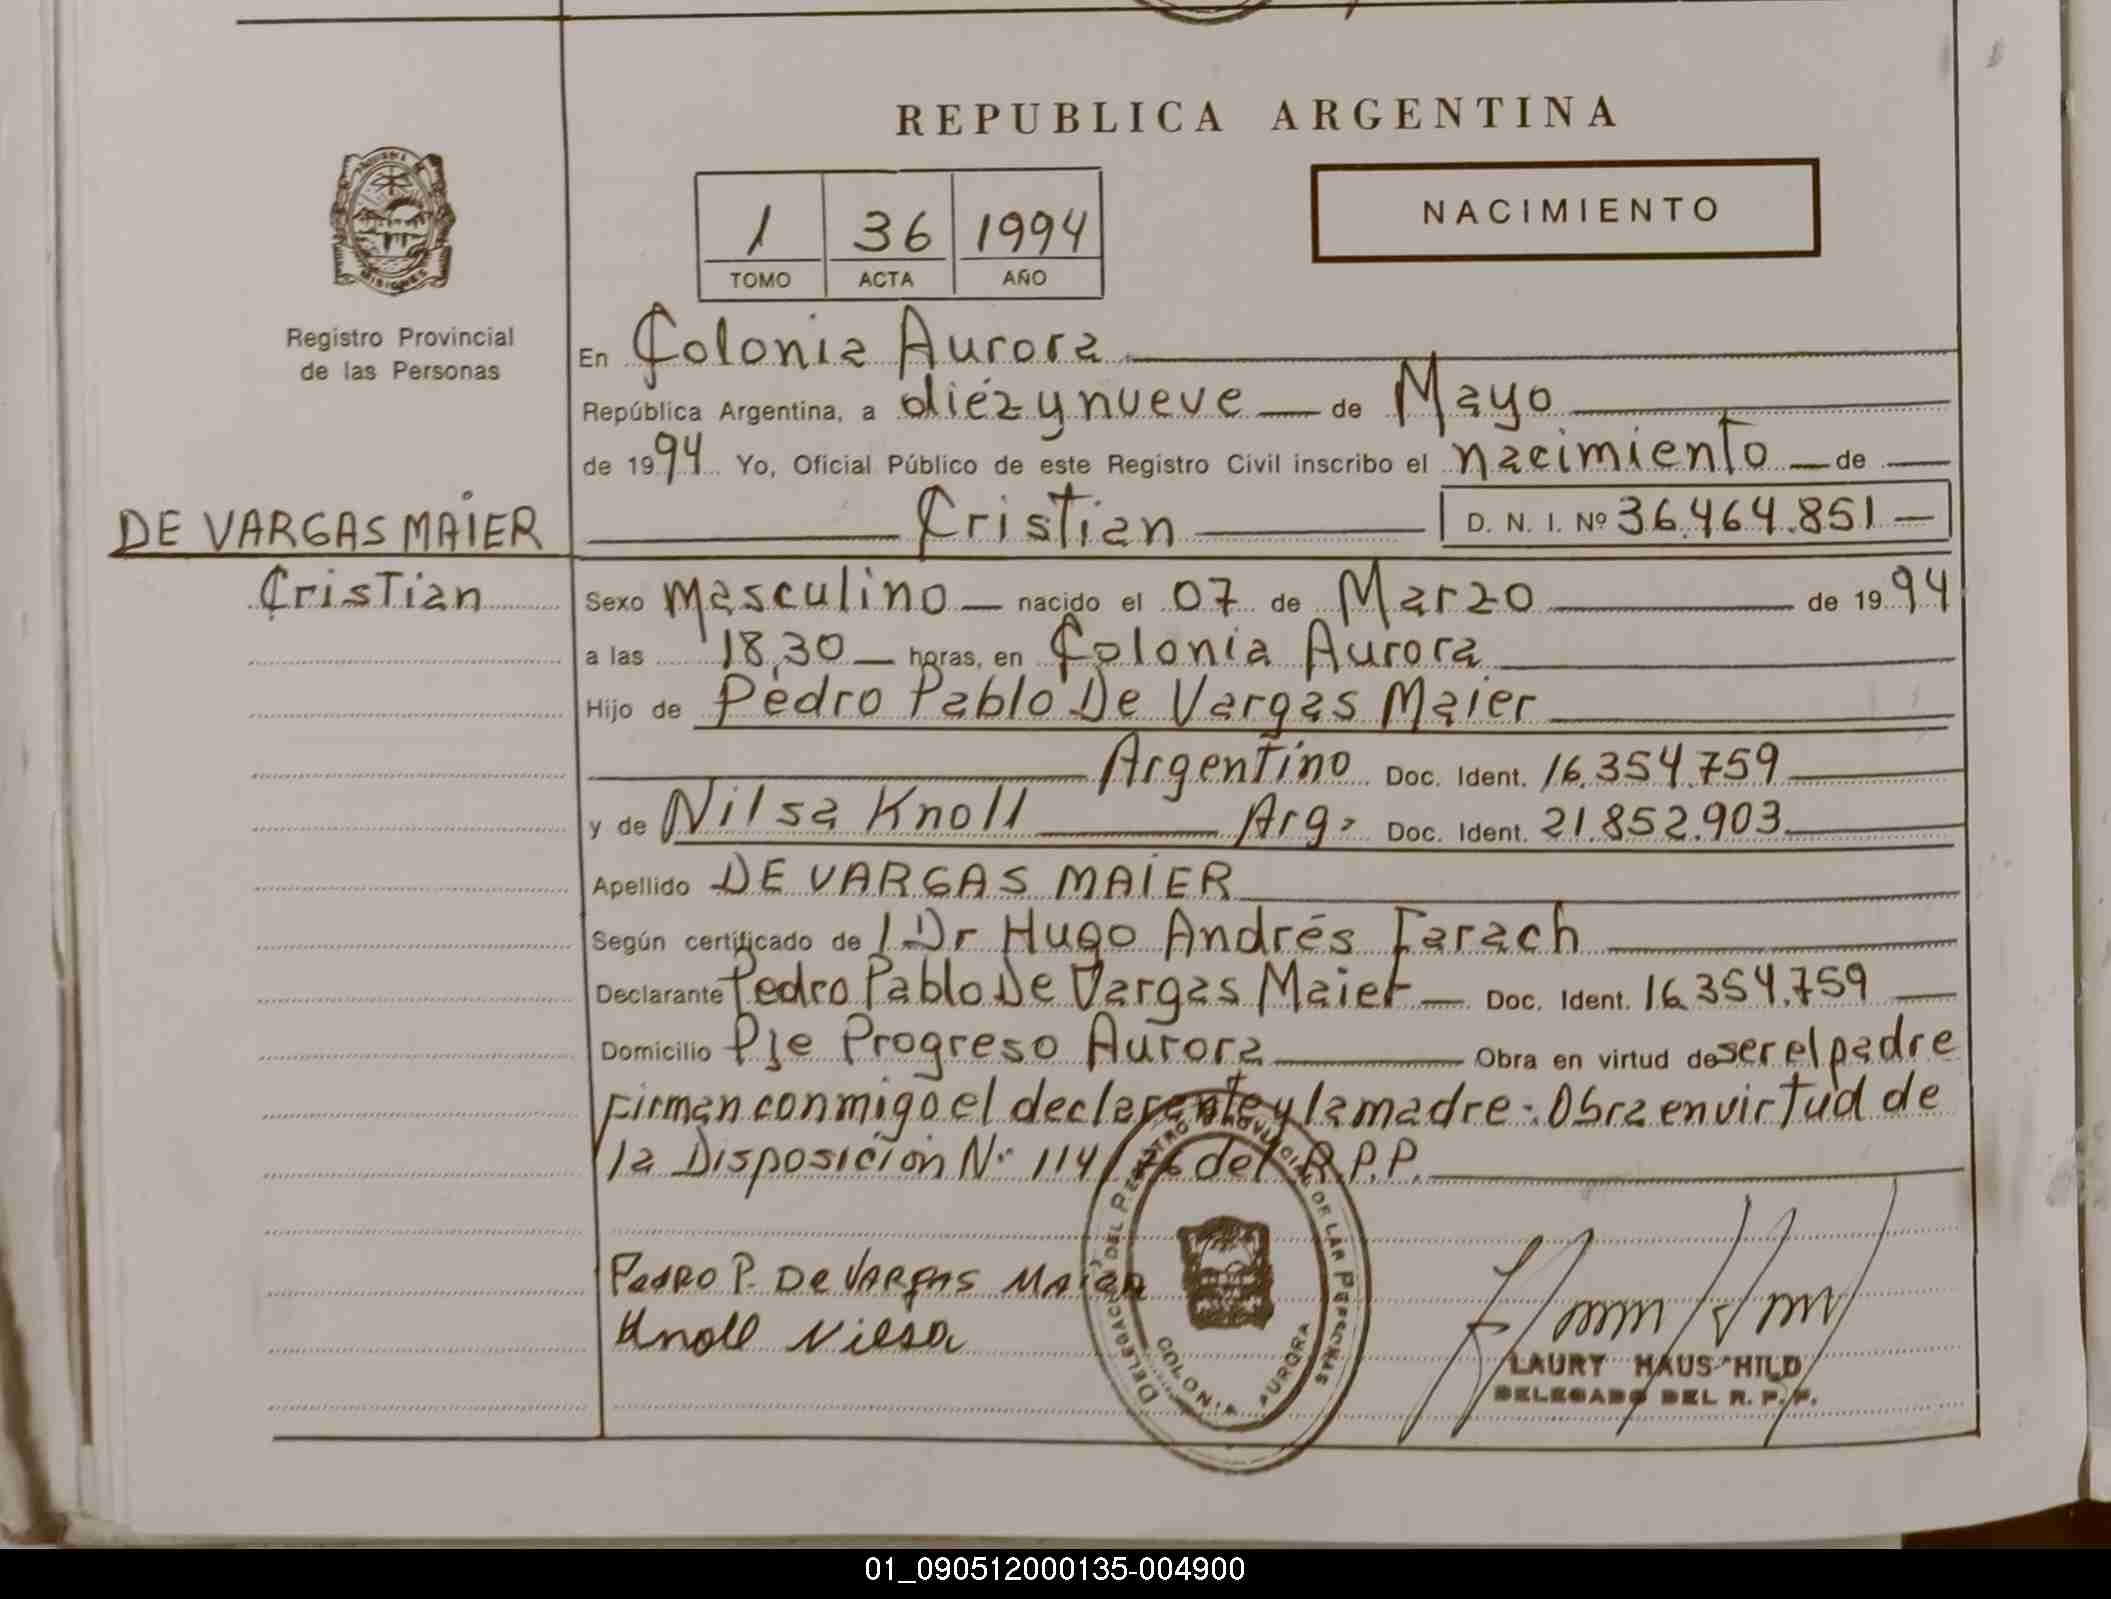 REPUBLICA ARGENTINA
NACIMIENTO
1 36 1994
TOMO ACTA AÑO
Registro Provincial
de las Personas
En Colonia Aurora
República Argentina, a diéz y nueve de Mayo
de 1994 Yo, Oficial Público de este Registro Civil inscribo el nacimiento de
Cristian D. N. I. Nº 36.464.851
DE VARGAS MAIER
Cristian
Sexo Masculino nacido el 07 de Marzo de 1994
a las 18,30 horas, en Colonia Aurora
Hijo de Pedro Pablo De Vargas Maier
Argentino Doc. Ident. 16.354.759
y de Nilsa Knoll Arg. Doc. Ident. 21.852.903
Apellido DE VARGAS MAIER
Según certificado de l Dr Hugo Andrés Farach
Declarante Pedro Pablo De Vargas Maier Doc. Ident. 16.354.759
Domicilio Pje Progreso Aurora Obra en virtud de ser el padre
Firman conmigo el declarante y la madre. Obra en virtud de
la Disposición Nº 114/76 del R.P.P.
PEDRO P. DE VARGAS MAIER
Knoll Nilsa
DELEGACION DEL REGISTRO PROVINCIAL DE LAS PERSONAS
COLONIA AURORA
LAURY HAUS HILD
DELEGADO DEL R. P. P.
01_090512000135-004900